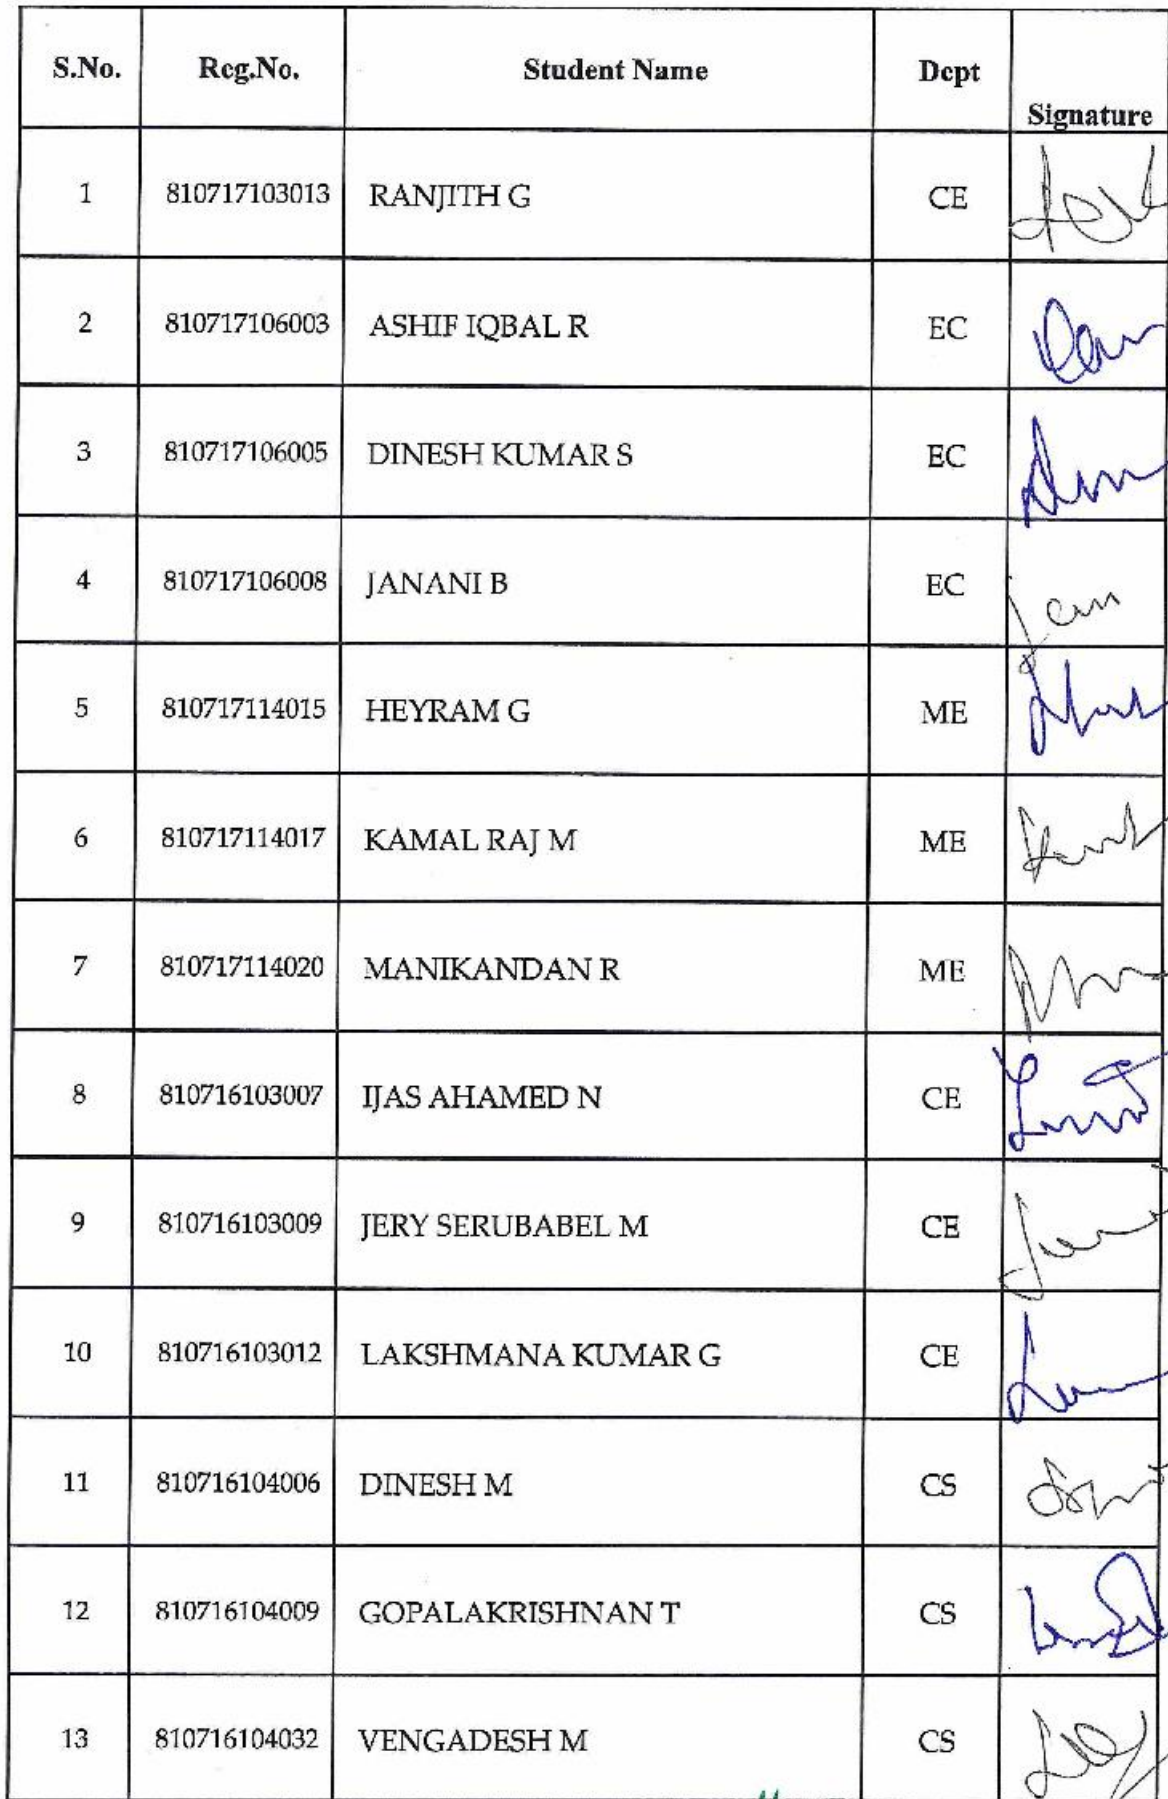 S.No. Reg.No. Student Name Dept Signature
1 810717103013 RANJITH G CE
2 810717106003 ASHIF IQBAL R EC
3 810717106005 DINESH KUMAR S EC
4 810717106008 JANANI B EC
5 810717114015 HEYRAM G ME
6 810717114017 KAMAL RAJ M ME
7 810717114020 MANIKANDAN R ME
8 810716103007 IJAS AHAMED N CE
9 810716103009 JERY SERUBABEL M CE
10 810716103012 LAKSHMANA KUMAR G CE
11 810716104006 DINESH M CS
12 810716104009 GOPALAKRISHNAN T CS
13 810716104032 VENGADESH M CS